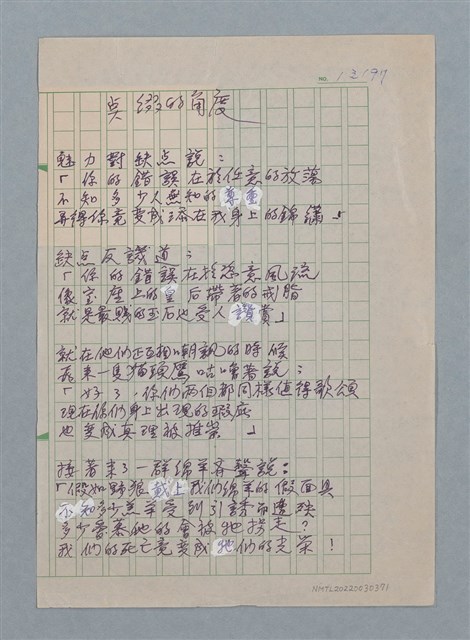 NO. 1之197
点綴的角度
魅力對缺点說：
「你的錯誤在於任意的放蕩
不知多少人無知的尊重
弄得你竟變成添在我身上的錦繡」
缺点反譏道：
「你的錯誤在於恣意風流
像宝座上的皇后帶著的戒脂
就是最賤的玉石也受人讚賞」
就在他們正互相嘲諷的時候
飛來一隻猫頭鷹咕嚕著說：
「好了，你們两個都同樣值得歌頌
現在你們身上出現的瑕疵
也變成真理被推崇　」
接著來了一群綿羊齊聲說：
「假如野狼戴上我們綿羊的假面具
不知多少羔羊受到引誘而遭殃
多少香慕他的會被牠拐走？
我們的死亡竟變成牠們的光榮！
NMTL20220030371